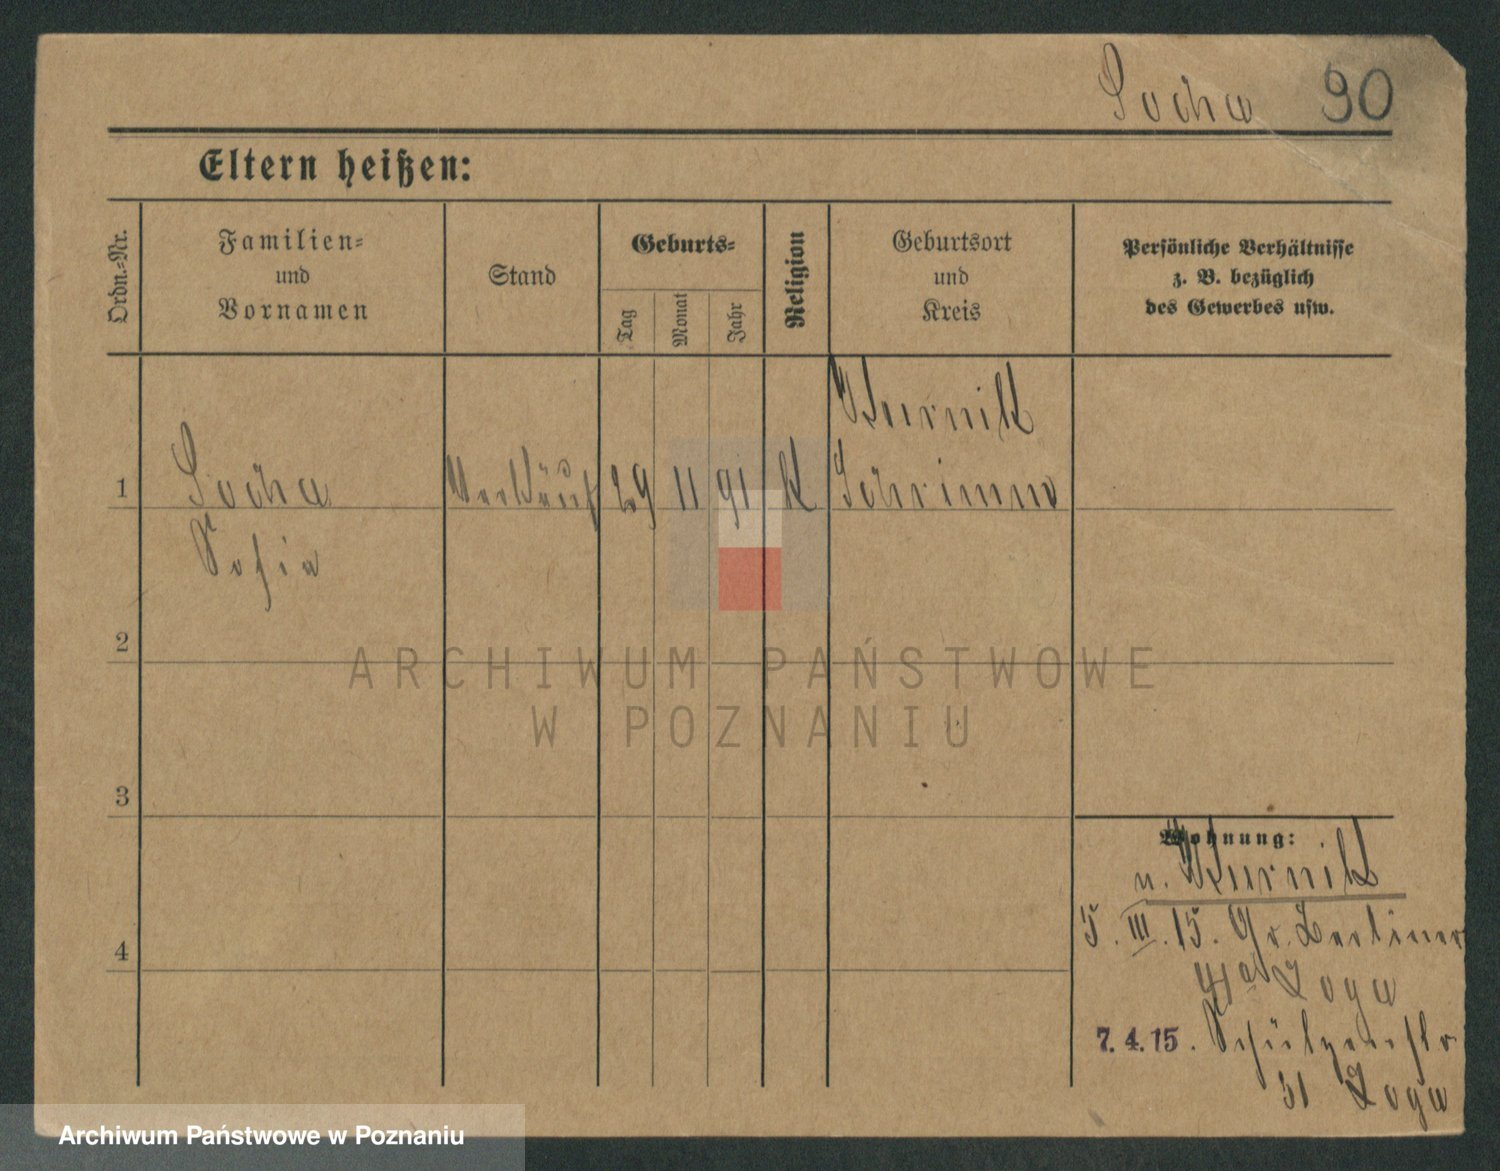 Socha 90
Eltern heißen:
Ordn.-Nr.
Familien-
und
Vornamen
Stand
Geburts-
Tag
Monat
Jahr
Religion
Geburtsort
und
Kreis
Persönliche Verhältnisse
z. B. bezüglich
des Gewerbes usw.
Kurnik
1 Socha Verkäuf 29 11 91 k Schrimm
Sofia
2
3
4
Wohnung:
n. Kurnik
5. III. 15. Gr. Berliner
41a Zoga
7. 4. 15. Schützenstr
31 Zoga
ARCHIWUM PAŃSTWOWE
W POZNANIU
Archiwum Państwowe w Poznaniu